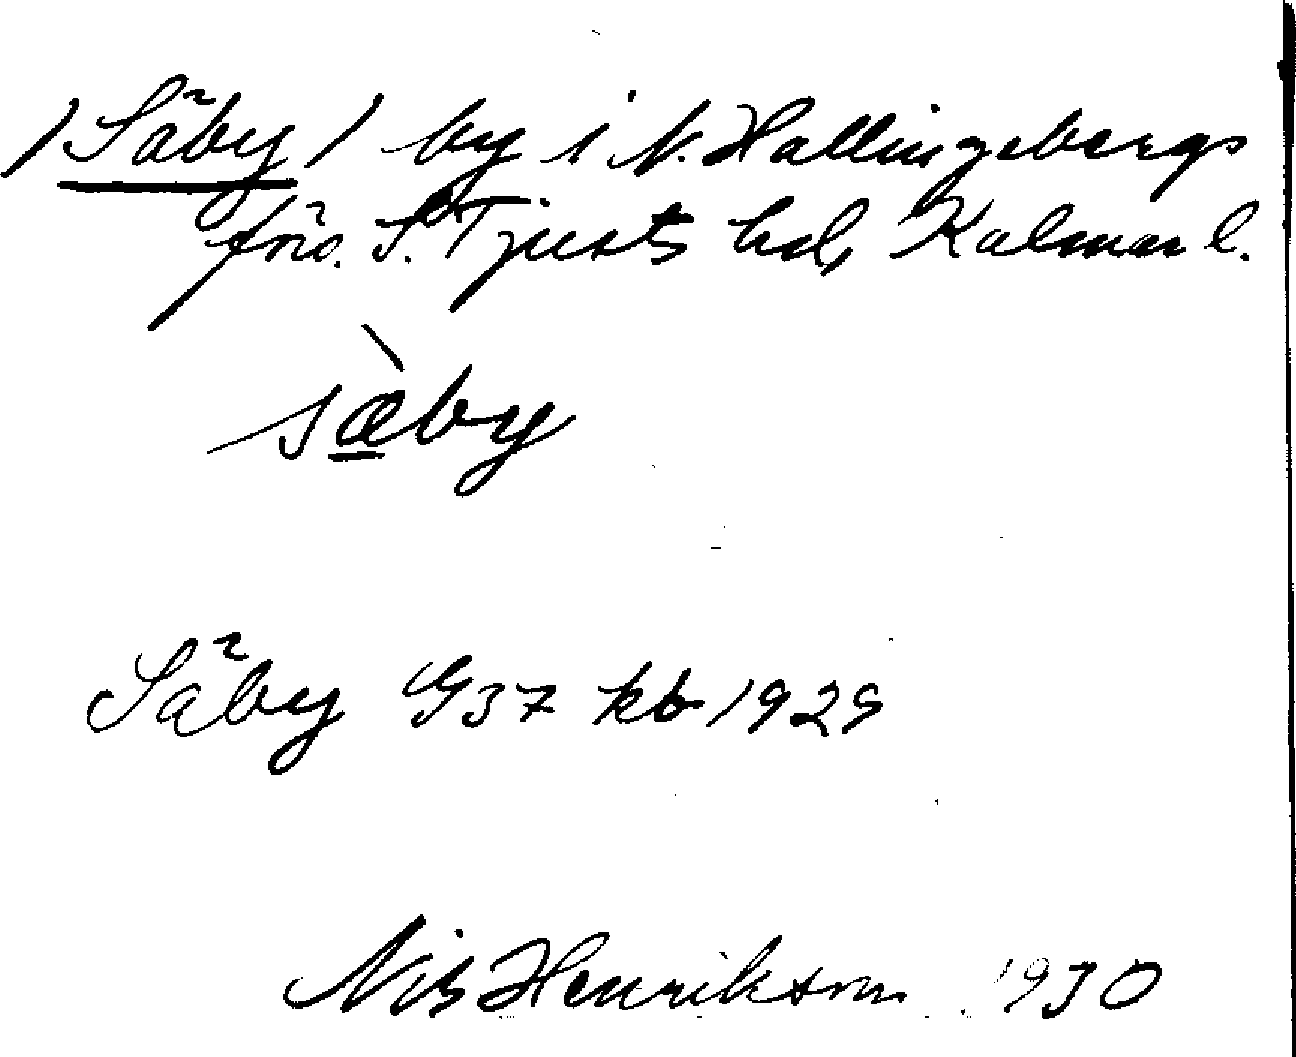 /Säby/ by i N. Hallingebergs
frö. S. Tjusts hd, Kalmar l.
sæ̀by
Säby G37 kb 1929
Nils Henrikson 1930